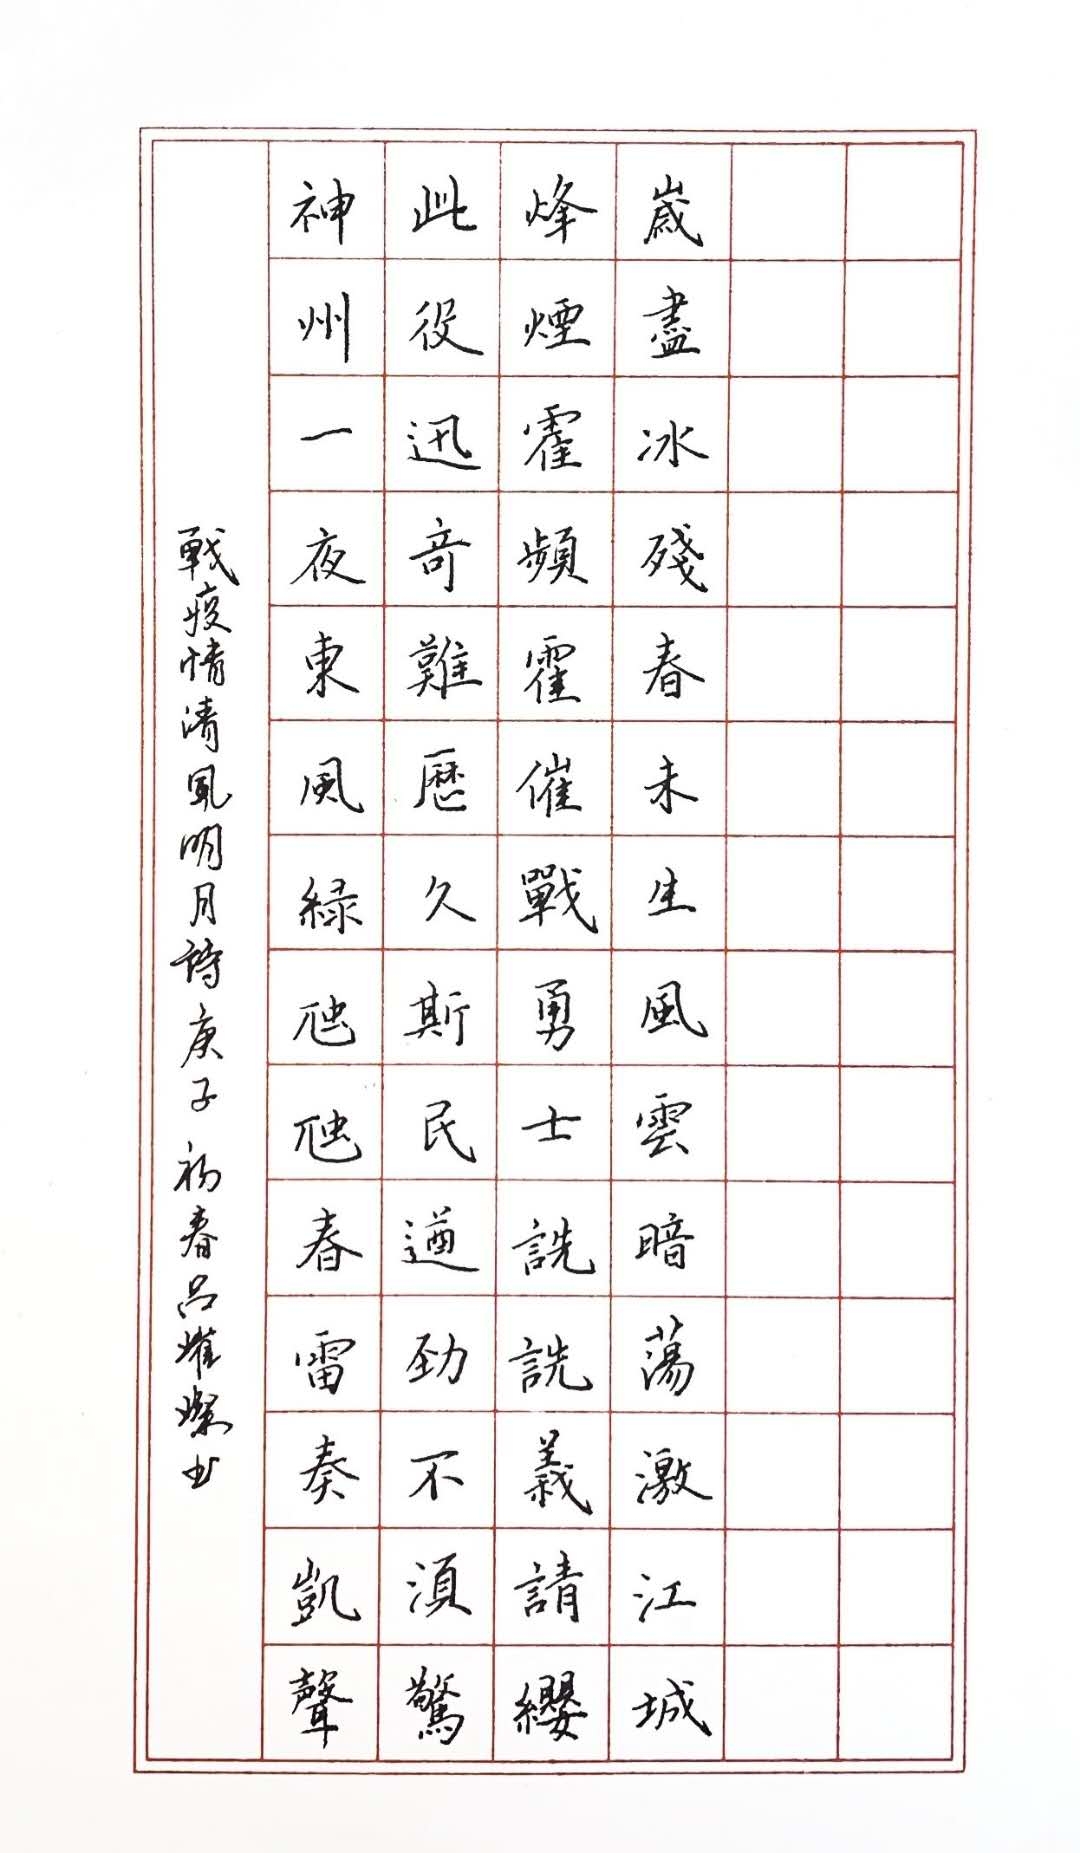 歲盡冰殘春未生風雲暗蕩激江城
烽煙霍頻霍催戰勇士詵詵義請纓
此役迅奇難歷久斯民遒勁不須驚
神州一夜東風綠虺虺春雷奏凱聲
戰疫情清風明月詩庚子初春呂燿燦书